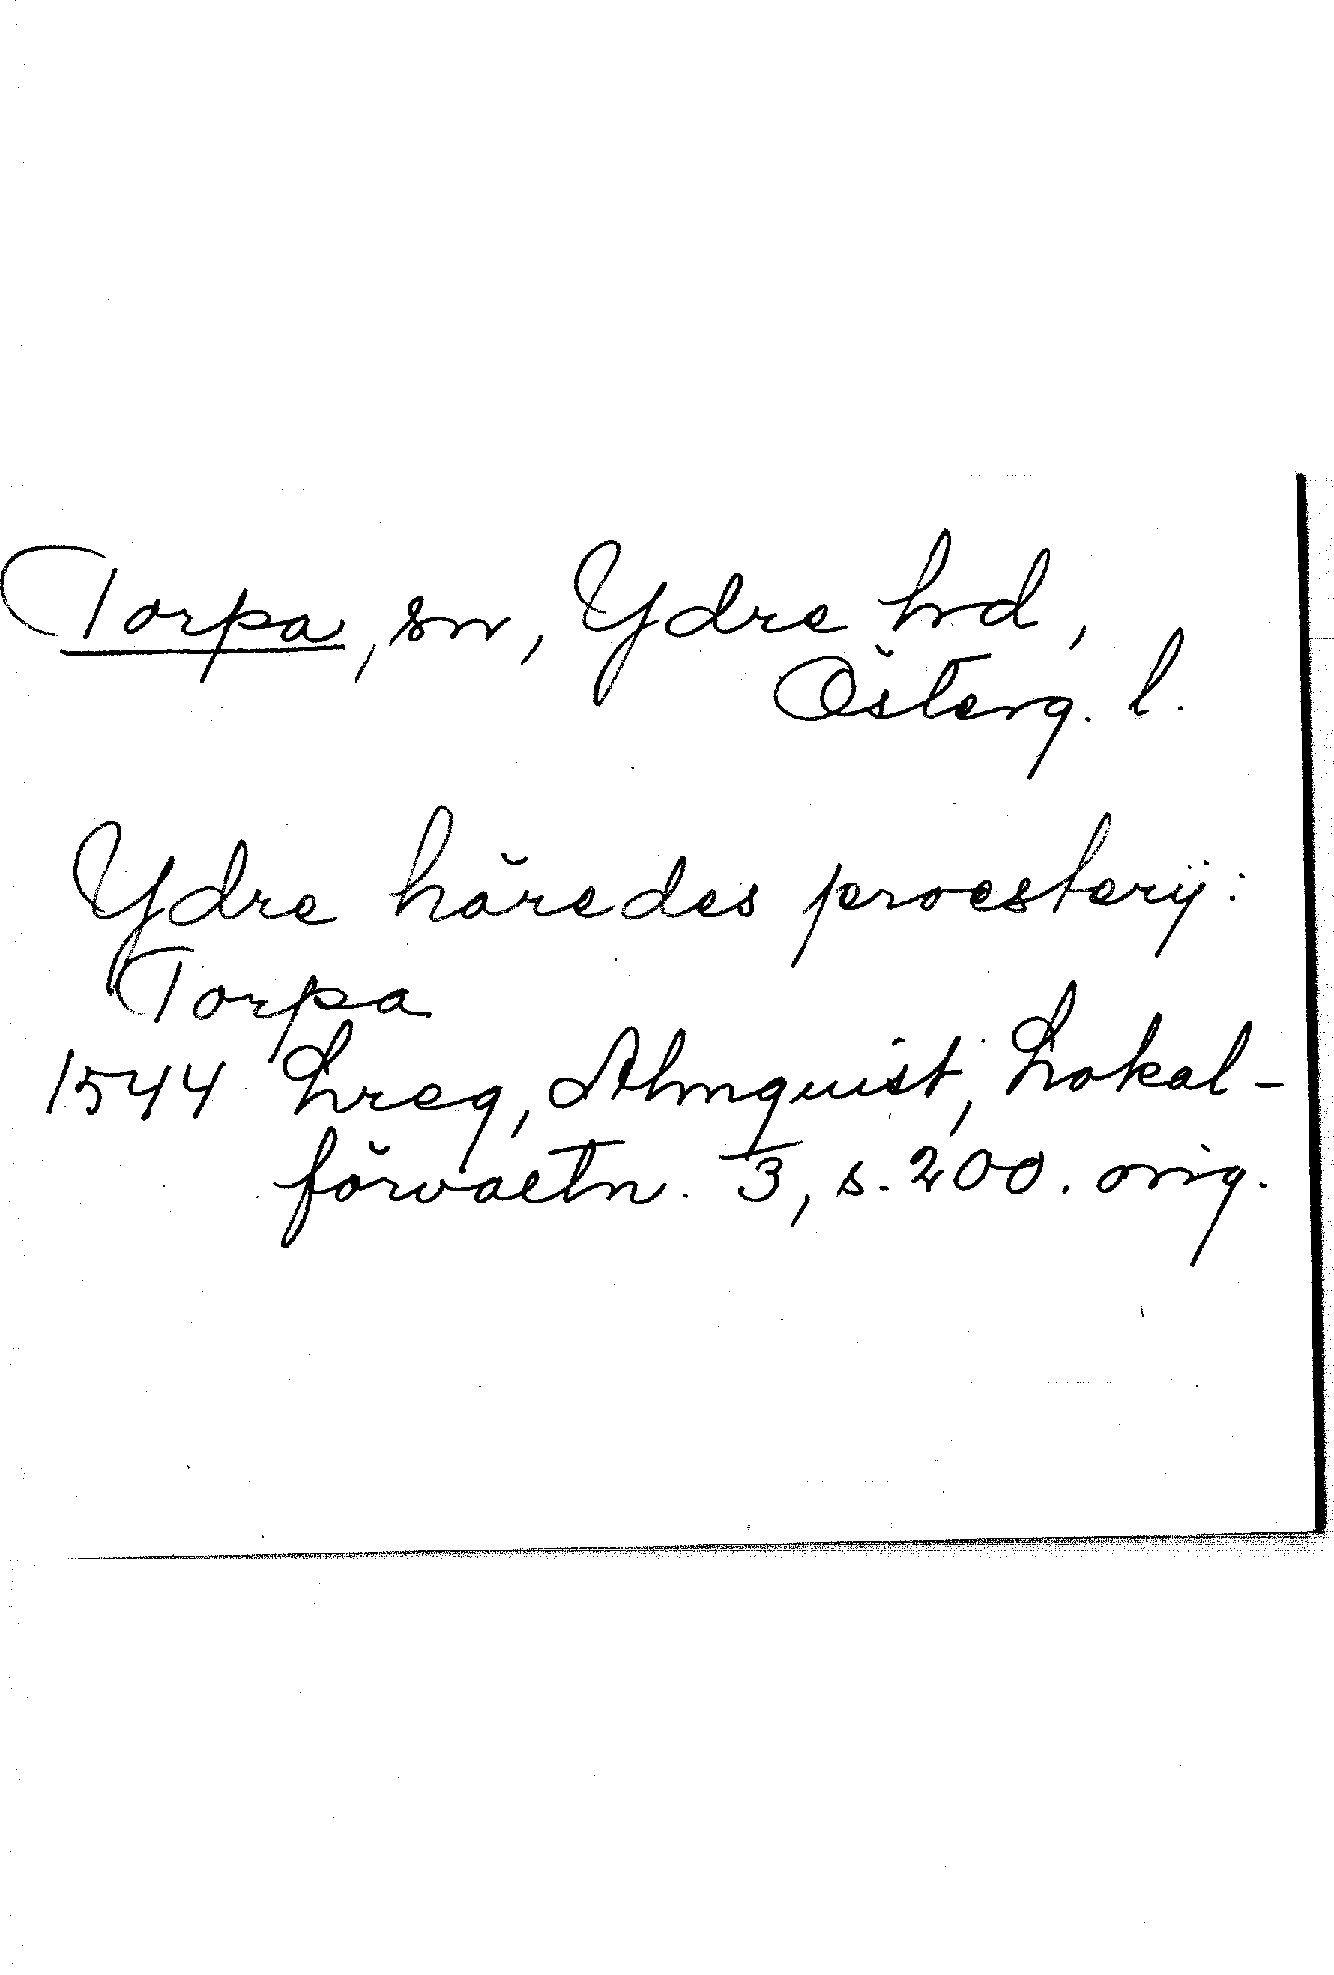 Torpa, sn, Ydre hd,
Österg. l.
Ydre häredes proesterij:
Torpa
1544 Lreg, Almquist, Lokal-
förvaltn. 3, s. 200. orig.